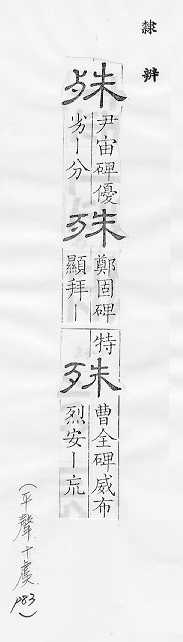 隸辨
殊
尹宙碑優
劣ー分
殊
鄭固碑
顯拜ー
特
殊
曹全碑威布
烈安ー巟
(平聲十虞 P83)